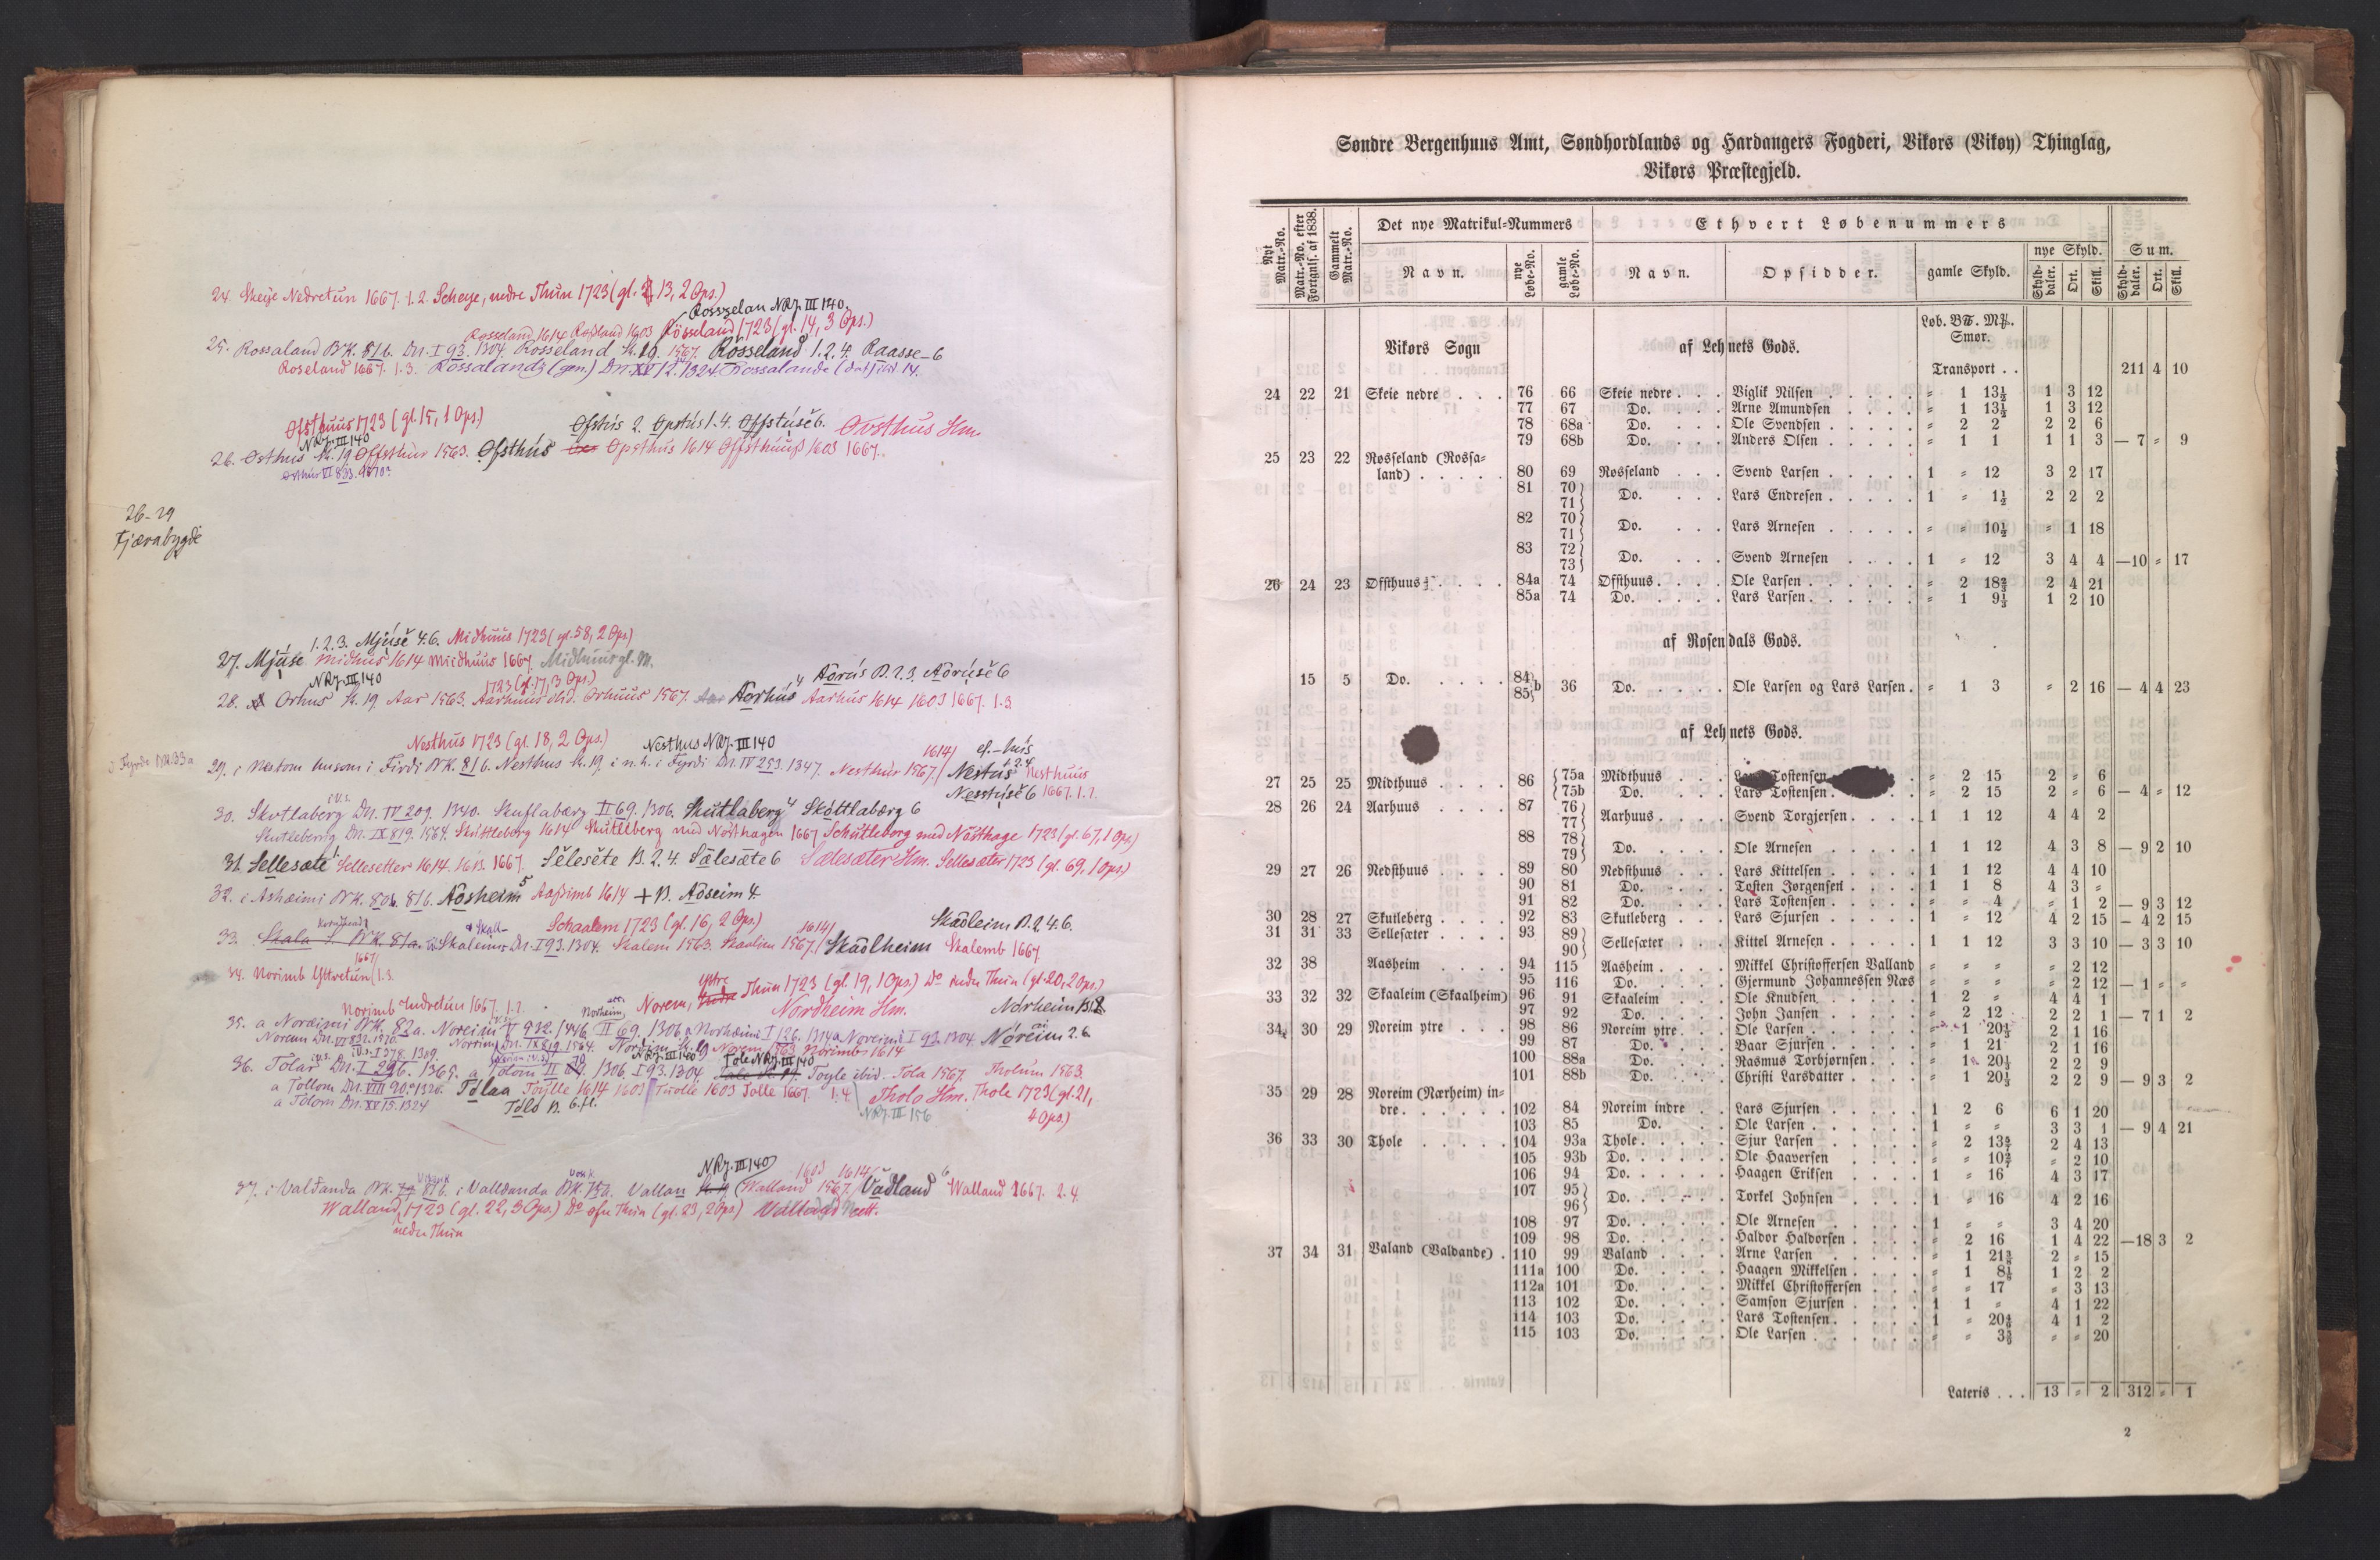 24. Skeije Nedretun 1667. 1.2. Scheye, nedre Thun 1723 (gl. 13, 2 Ops.)
Rosszelan NRJ. III 140
Rosseland 1614 Rosland 1603 Rösseland 1723 (gl. 14, 3 Ops.)
25. Rossaland BK. 81b. Dn. I 93. 1304. Rosseland k. 19. 1567. Rosseland 1.2.4. Raasse- 6
Roseland 1667. 1.3. Rossalande (gen.) Dn. XV 12. 1324 Rossalande (dat) ibid 14.
Ofsthuus 1723 (gl. 15, 1 Ops.)
NRJ. III 140
Ofsthus 2. Opstus 1.4. Offstuse 6. Ovsthus Hm.
26. Osthus k. 19 Offsthus 1563. Ofsthus Opsthus 1614 Offsthuus 1603 1667.
26-29
Fjærabygde
1.2.3. Mjuse 4.6. Midhuus 1723 (gl. 58, 2 Ops.)
27. Mjuse Midhus 1614 Miidhuus 1667. Midhuus gl. M.
NRJ. III 140
1723 (gl. 17, 3 Ops.)
Aorus B. 2.3. Aoruse 6
28. Orhus k. 19. Aar 1563. Aarhuus ibid. Orhuus 1567. Aorhus Aarhus 1614 1603 1667. 1.3.
Nesthus 1723 (gl. 18, 2 Ops.) Nesthus NRJ. III 140
29. i Næstom husom i Firdi BK. 81b. Nesthus k. 19. i n. h. i Fyrdi Dn. IV 253. 1347. Nesthus 1567. 1614 Nestus Nesthuus
Nesstuse 6 1667. 1.2.
30. Skutlaberg Dn. IV 209. 1340. Skuflabærg II 69. 1306. Skutlaberg Skottlabærg 6
Skutleberrig Dn. IX 819. 1564. Skuttleberg 1614 Skuttlberg med Nosthagen 1667 Schuttleborg med Nösthage 1723 (gl. 67, 1 Ops.)
31. Sellesæte Sellesetter 1614. 1603. 1667. Sělesěte B. 2. 4. Sælesæte 6 Sælesæter Hm. Sellesæter 1723 (gl. 69, 1 Ops.)
32. i Ashæimi BK. 80b. 81b. Aosheim Aassimb 1614 + B. Aoseim 4.
Schaalem 1723 (gl. 16, 2 Ops.)
Skaoleim B. 2 4. 6.
33. Skala BK. 81a. Skaleim Dn. I 93. 1304. Skalem 1563. Skaalim 1567. 1614 Skaolheim Skalemb 1667
34. Norimb Yttretun 1667 1.3.
Norem, ytre Thun 1723 (gl. 19, 1 Ops.) Do indre Thun (gl. 20, 2 Ops.)
Norimb Indretun 1667. 1.2.
Nordheim Hm. Norheim B. 2
35. a Noræimi BK. 82a. Noreim V 932. 1446 II 69. 1306. Norhæimi I 126. 1314 a Noreimi I 93. 1304 Noreim 2. 6.
Norem Dn. VI 832. 1570. Norrim Dn. IX 819. 1564. Nordeim k. 19 Norem 1563 Norimb 1614
36. Tolar Dn. I 296. 1365. a Tolom II 69. 1306 I 93. 1304 Tole NRJ. III 140 Toyle ibid. Tola 1567. Tholum 1563.
a Tollom Dn. VIII 90. 1320. Tolaa Toylle 1614 1603 Tuolle 1603 Tolle 1667. 1.4 Tholo Hm. Thole 1723 (gl. 21,
a Tolom Dn. XV 15. 1324 Tolo B. 6. fl. NRJ. III 156 4 Ops.)
NRJ. III 140
1603 1614
37. i Valdanda BK. 81b. i Valldanda BK. 75a. Vallan (Walland 1567. Vadland Walland 1667. 2. 4.
Walland, 1723 (gl. 22, 3 Ops.) Do øfre Thun (gl. 23, 2 Ops.)
nedre Thun
Søndre Bergenhuus Amt, Søndhordlands og Hardangers Fogderi, Vikørs (Vikøy) Thinglag,
Vikørs Præstegjeld.
Nyt Matr.-No. Matr.-No. efter Fortgnls. af 1838. Gammelt Matr.-No. Det nye Matrikul-Nummers Ethvert Løbenummers
Navn. nye Løbe-No. gamle Løbe-No. Navn. Opsidder. gamle Skyld. nye Skyld. Sum.
Skylddaler. Ort. Skill. Skylddaler. Ort. Skill.
Løb. B℔. M℔.
Smør.
Vikørs Sogn af Lehnets Gods.
Transport . . 211 4 10
24 22 21 Skeie nedre . . . 76 66 Skeie nedre . . . Viglik Nilsen . . . . . " 1 13½ 1 3 12
77 67 Do. . . . Arne Amundsen . . . . " 1 13½ 1 3 12
78 68a Do. . . . Ole Svendsen . . . . . " 2 2 2 2 6
79 68b Do. . . . Anders Olsen . . . . . " 1 1 1 1 3 — 7 " 9
25 23 22 Røsseland (Rossa=
land) . . . . . 80 69 Røsseland . . . Svend Larsen . . . . . 1 " 12 3 2 17
81 70 71} Do. . . . Lars Endresen . . . . . 1 " 1½ 2 2 2
82 70 71} Do. . . . Lars Arnesen . . . . . " " 10½ " 1 18
83 72 73} Do. . . . Svend Arnesen . . . . 1 " 12 3 4 4 —10 " 17
26 24 23 Offthuus . . . . 84a 74 Offthuus . . . . Ole Larsen . . . . . . " 2 18⅔ 2 4 21
85a 74 Do. . . . . Lars Larsen . . . . . . " 1 9⅓ 1 2 10
af Rosendals Gods.
15 5 Do. . . . . . 84 85}b 36 Do. . . . . . Ole Larsen og Lars Larsen . " 1 3 " 2 16 — 4 4 23
af Lehnets Gods.
27 25 25 Midthuus . . . . 86 {75a Midthuus . . . Tostensen . " 2 15 2 " 6
{75b Do. . . . Lars Tostensen . " 2 15 2 " 6 — 4 " 12
28 26 24 Aarhuus . . . . 87 76 77} Aarhuus . . . . Svend Torgjersen . . . . 1 1 12 4 4 2
88 78 79} Do. . . . Ole Arnesen . . . . . 1 1 12 4 3 8 — 9 2 10
29 27 26 Nedsthuus . . . . 89 80 Nedsthuus . . . Lars Kittelsen . . . . 1 1 12 4 4 10
90 81 Do. . . . . Tosten Jørgensen . . . . 1 1 8 4 3 "
91 82 Do. . . . . Lars Tostensen . . . . . " " 4 " 1 2 — 9 3 12
30 28 27 Skutleberg . . . . 92 83 Skutleberg . . . Lars Sjursen . . . . . 1 " 12 4 2 15 — 4 2 15
31 31 33 Sellesæter . . . . 93 89 90} Sellesæter . . . Kittel Arnesen . . . . . 1 1 12 3 3 10 — 3 3 10
32 38 Aasheim . . . . 94 115 Aasheim . . . . Mikkel Christoffersen Valland " " " " 2 12
95 116 Do. . . . . Gjermund Johannessen Næs " " " " 2 12 — 1 " "
33 32 32 Skaaleim (Skaalheim) 96 91 Skaaleim . . . Ole Knudsen . . . . . 1 2 " 4 4 1
97 92 Do. . . . . John Jansen . . . . . " 2 12 2 2 1 — 7 1 2
34 30 29 Noreim ytre . . . 98 86 Noreim ytre . . . Ole Larsen . . . . . . " 1 20⅓ 2 1 16
99 87 Do. . . . Baar Sjursen . . . . . " 1 21 2 1 16
100 88a Do. . . . Rasmus Torbjørnsen . . . " 1 20⅓ 2 2 9
101 88b Do. . . . Christi Larsdatter . . . . " 1 20⅓ 2 2 9 — 9 3 2
35 29 28 Noreim (Nærheim) in=
dre . . . . . . 102 84 Noreim indre . . Lars Sjursen . . . . . 1 2 6 6 1 20
103 85 Do. . . Ole Larsen . . . . . . 1 " " 3 3 1 — 9 4 21
36 33 30 Thole . . . . . 104 93a Thole . . . . . Sjur Larsen . . . . . " 2 13 2 4 13
105 93b Do. . . . . . Ole Haaversen . . . . " " 10 " 2 10
106 94 Do. . . . . . Haagen Eriksen . . . . 1 " 16 4 3 17
107 95 96} Do. . . . . . Torkel Johnsen . . . . 1 " 16 4 2 16
108 97 Do. . . . . . Ole Arnesen . . . . . 1 " " 3 4 20
109 98 Do. . . . . . Haldor Haldorsen . . . . " 2 16 1 4 22 —18 3 2
37 34 31 Valand (Valdande) . 110 99 Valand . . . . Arne Larsen . . . . . " 1 21 2 " 15
111a 100 Do. . . . . Haagen Mikkelsen . . . . " 1 8 1 2 2
112a 101 Do. . . . . Mikkel Christoffersen . . . " " 17 " 3 13
113 102 Do. . . . . Samson Sjursen . . . . 1 1 " 4 1 22
114 103 Do. . . . . Lars Tostensen . . . . . 1 " 20 4 1 2
115 103 Do. . . . . Ole Larsen . . . . . . " " 3 " " 20
Lateris . . . 13 " 2 312 " 1
2